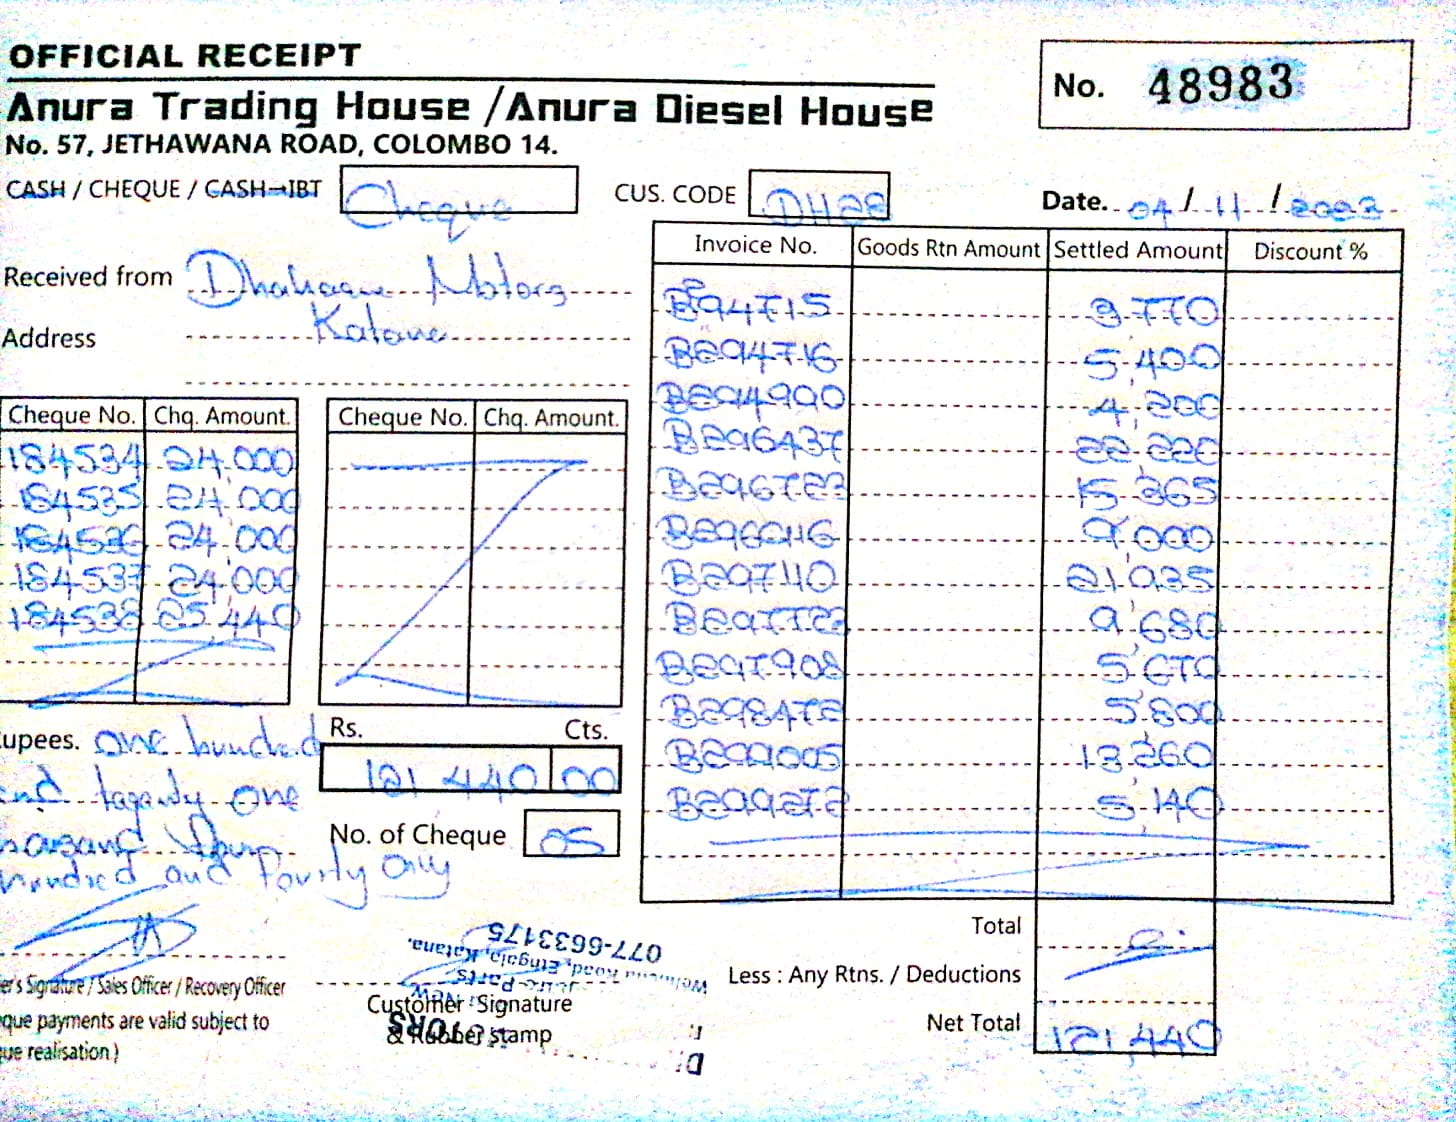 OFFICIAL RECEIPT
No. 48983
Anura Trading House / Anura Diesel House
No. 57, JETHAWANA ROAD, COLOMBO 14.
CASH / CHEQUE / CASH→IBT Cheque
CUS. CODE DH28
Date. 04 / 11 / 2023
Received from Motors
Address Katana
Cheque No. Chq. Amount. Cheque No. Chq. Amount.
184534 24,000
184535 24,000
184536 24,000
184537 24,000
184538 25,440
Invoice No. Goods Rtn Amount Settled Amount Discount %
B294715
B294716 5,400
B294990 4,200
B296437 22,220
9,000
B297110 21,935
9,680
B297908 5,670
B298472 5,800
B299005 13,260
B299272 5,140
upees. One hunded
and One
hundred and Fourty Only
Rs. Cts.
121 440 00
No. of Cheque 05
Total
Less : Any Rtns. / Deductions
Net Total 121,440
er's Signature / Sales Officer / Recovery Officer
que payments are valid subject to
ue realisation)
Customer Signature
& Rubber stamp
Road, Etgala, Katana.
077-6633175